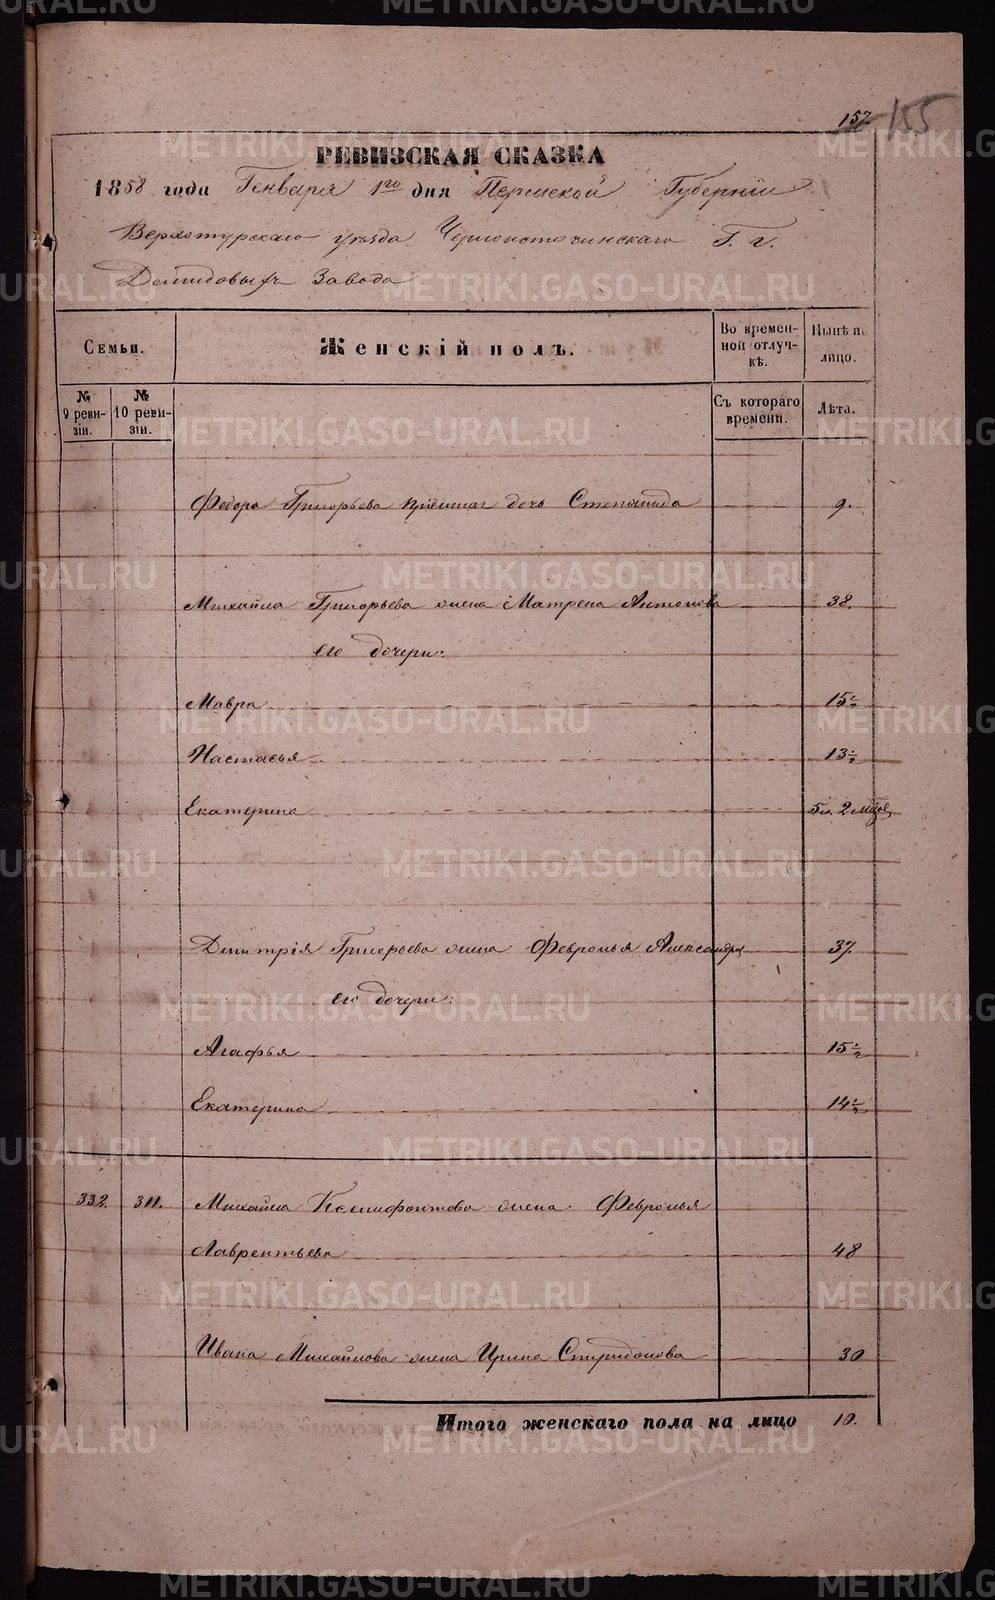 157 155
РЕВИЗСКАЯ СКАЗКА
1858 года Генваря 1го дня Пермской Губерніи
Верхотурскаго уѣзда Черноисточинскаго Г. г.
Демидовыхъ Завода
Семьи.
Женскій полъ.
Во времен-
ной отлуч-
кѣ.
Нынѣ на
лицо.
№
9 реви-
зіи.
№
10 реви-
зіи.
Съ котораго
времени.
Лѣта.
Федора Григорьева пріемная дочь Степанида 9.
Михайла Григорьева жена Матрена Антонова 38.
его дочери:
Мавра 15½
Настасья 13½
Екатерина 5 л. 2 мѣся
Дмитрія Григорьева жена Февронья Александр 37.
его дочери:
Агафья 15½
Екатерина 14½
332. 311. Михайла Ксенофонтова жена Февронья
Лаврентьева 48
Ивана Михайлова жена Ирина Спиридонова 30
Итого женскаго пола на лицо 10.
METRIKI.GASO-URAL.RU